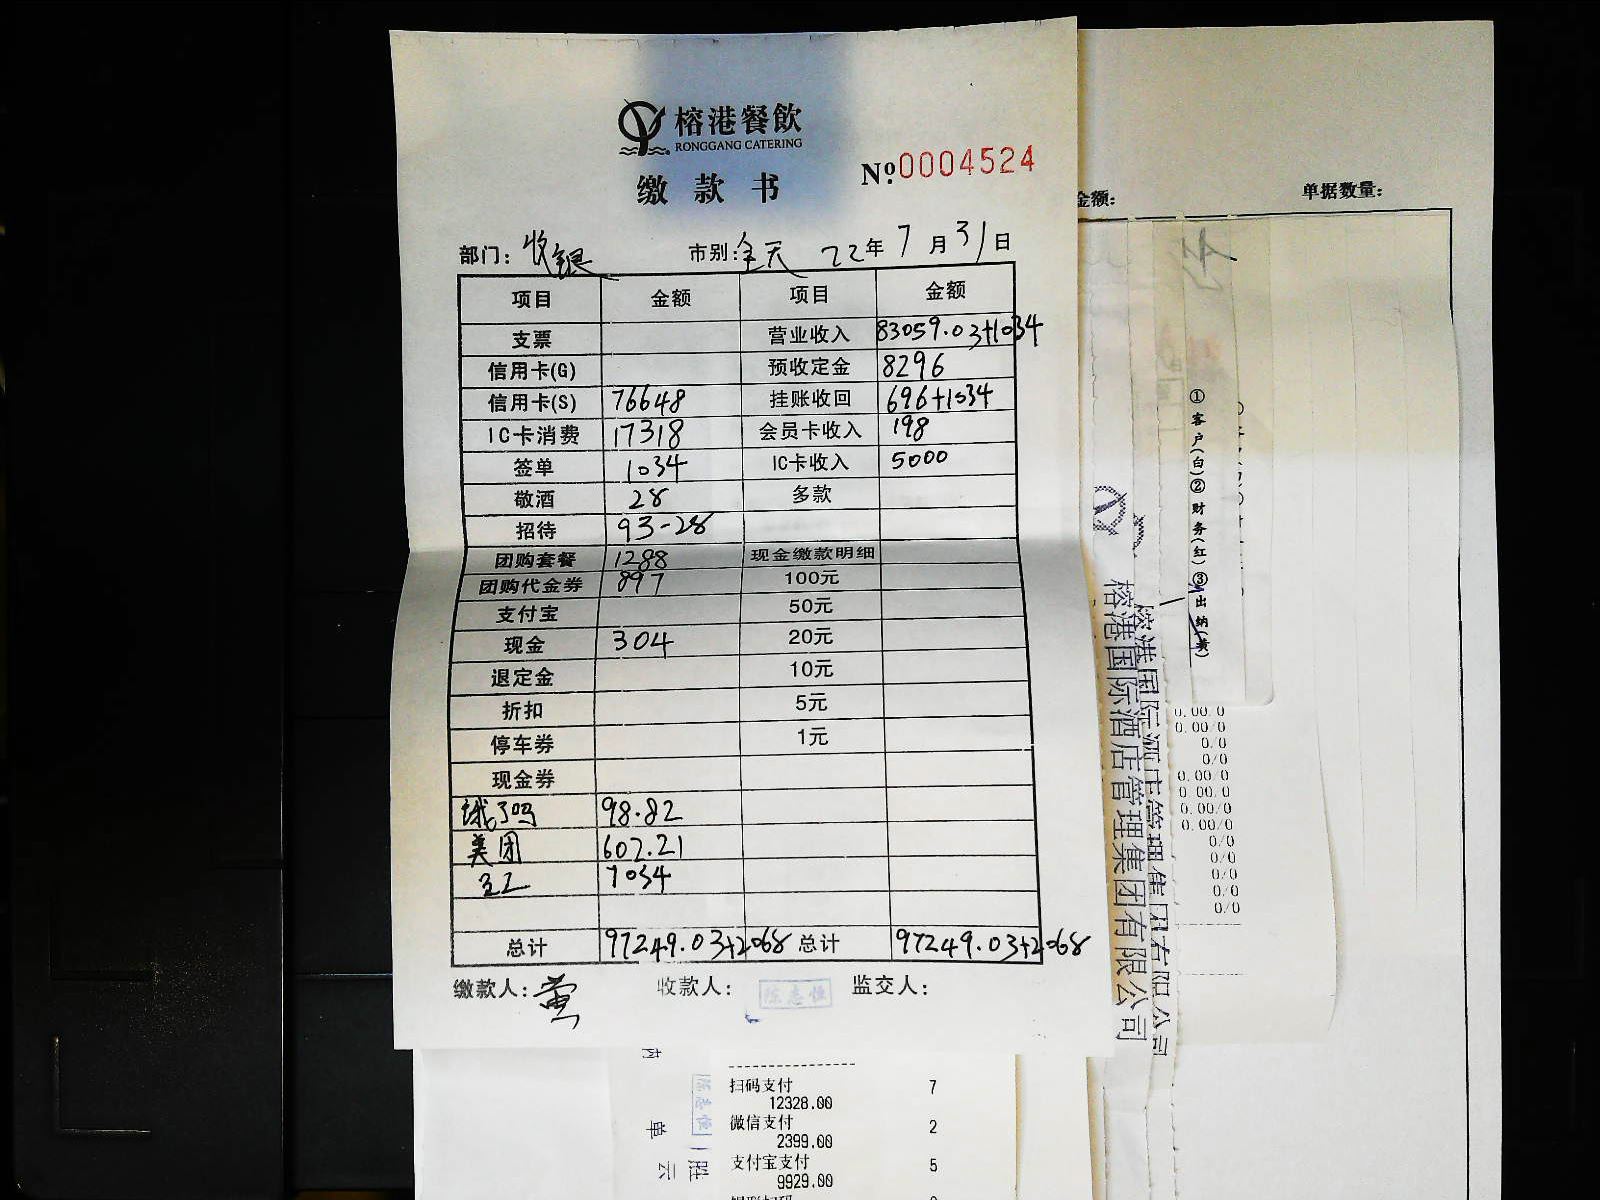 榕港餐飲
RONGGANG CATERING
缴款书
№0004524
部门：收银 市别：全天 22年7月31日
项目 金额 项目 金额
支票 营业收入 83059.03+1034
信用卡(G) 预收定金 8296
信用卡(S) 76648 挂账收回 696+1034
IC卡消费 17318 会员卡收入 198
签单 1034 IC卡收入 5000
敬酒 28 多款
招待 93-28
团购套餐 1288 现金缴款明细
团购代金券 897 100元
支付宝 50元
现金 304 20元
退定金 10元
折扣 5元
停车券 1元
现金券
饿了吗 98.82
美团 602.21
1034
总计 97249.03+2068 总计 97249.03+2068
缴款人： 收款人：陈志恒 监交人：
扫码支付 7
12328.00
微信支付 2
2399.00
支付宝支付 5
9929.00
金额： 单据数量：
①客户(白)②财务(红)③出纳(黄)
榕港国际酒店管理集团有限公司
榕港国际酒店管理集团有限公司
0.00/0
0.00/0
0/0
0/0
0.00/0
0.00/0
0.00/0
0.00/0
0/0
0/0
0/0
0/0
0/0
陈志恒
单
云